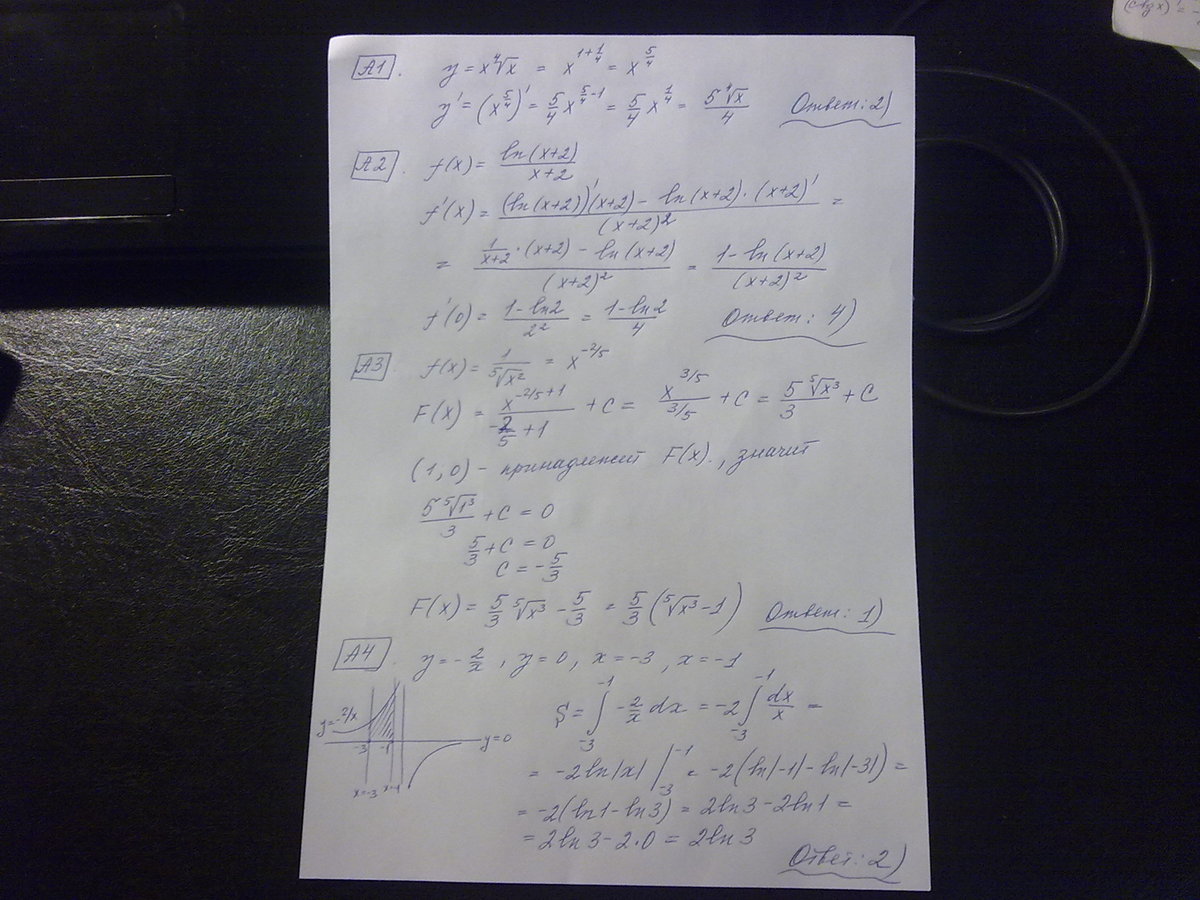 (ctg x)' = -
A1. y = x⁴√x = x^(1+1/4) = x^(5/4)
y' = (x^(5/4))' = 5/4 x^(5/4-1) = 5/4 x^(1/4) = 5⁴√x / 4 Ответ: 2)
A2. f(x) = ln(x+2) / x+2
f'(x) = (ln(x+2))'(x+2) - ln(x+2)·(x+2)' / (x+2)² =
= 1/x+2 ·(x+2) - ln(x+2) / (x+2)² = 1-ln(x+2) / (x+2)²
f'(0) = 1-ln2 / 2² = 1-ln2 / 4 Ответ: 4)
A3. f(x) = 1 / ⁵√x² = x^(-2/5)
F(x) = x^(-2/5+1) / -2/5 +1 + C = x^(3/5) / 3/5 + C = 5 ⁵√x³ / 3 + C
(1,0) - принадлежит F(x)., значит
5 ⁵√1³ / 3 + C = 0
5/3 + C = 0
C = -5/3
F(x) = 5/3 ⁵√x³ - 5/3 = 5/3 (⁵√x³ - 1) Ответ: 1)
A4. y = -2/x, y=0, x=-3, x=-1
y=-2/x
-3 -1 y=0
x=-3 x=-1
S = ∫₋₃⁻¹ -2/x dx = -2 ∫₋₃⁻¹ dx/x =
= -2 ln|x| |₋₃⁻¹ = -2(ln|-1| - ln|-3|) =
= -2(ln1 - ln3) = 2ln3 - 2ln1 =
= 2ln3 - 2·0 = 2ln3
Ответ: 2)